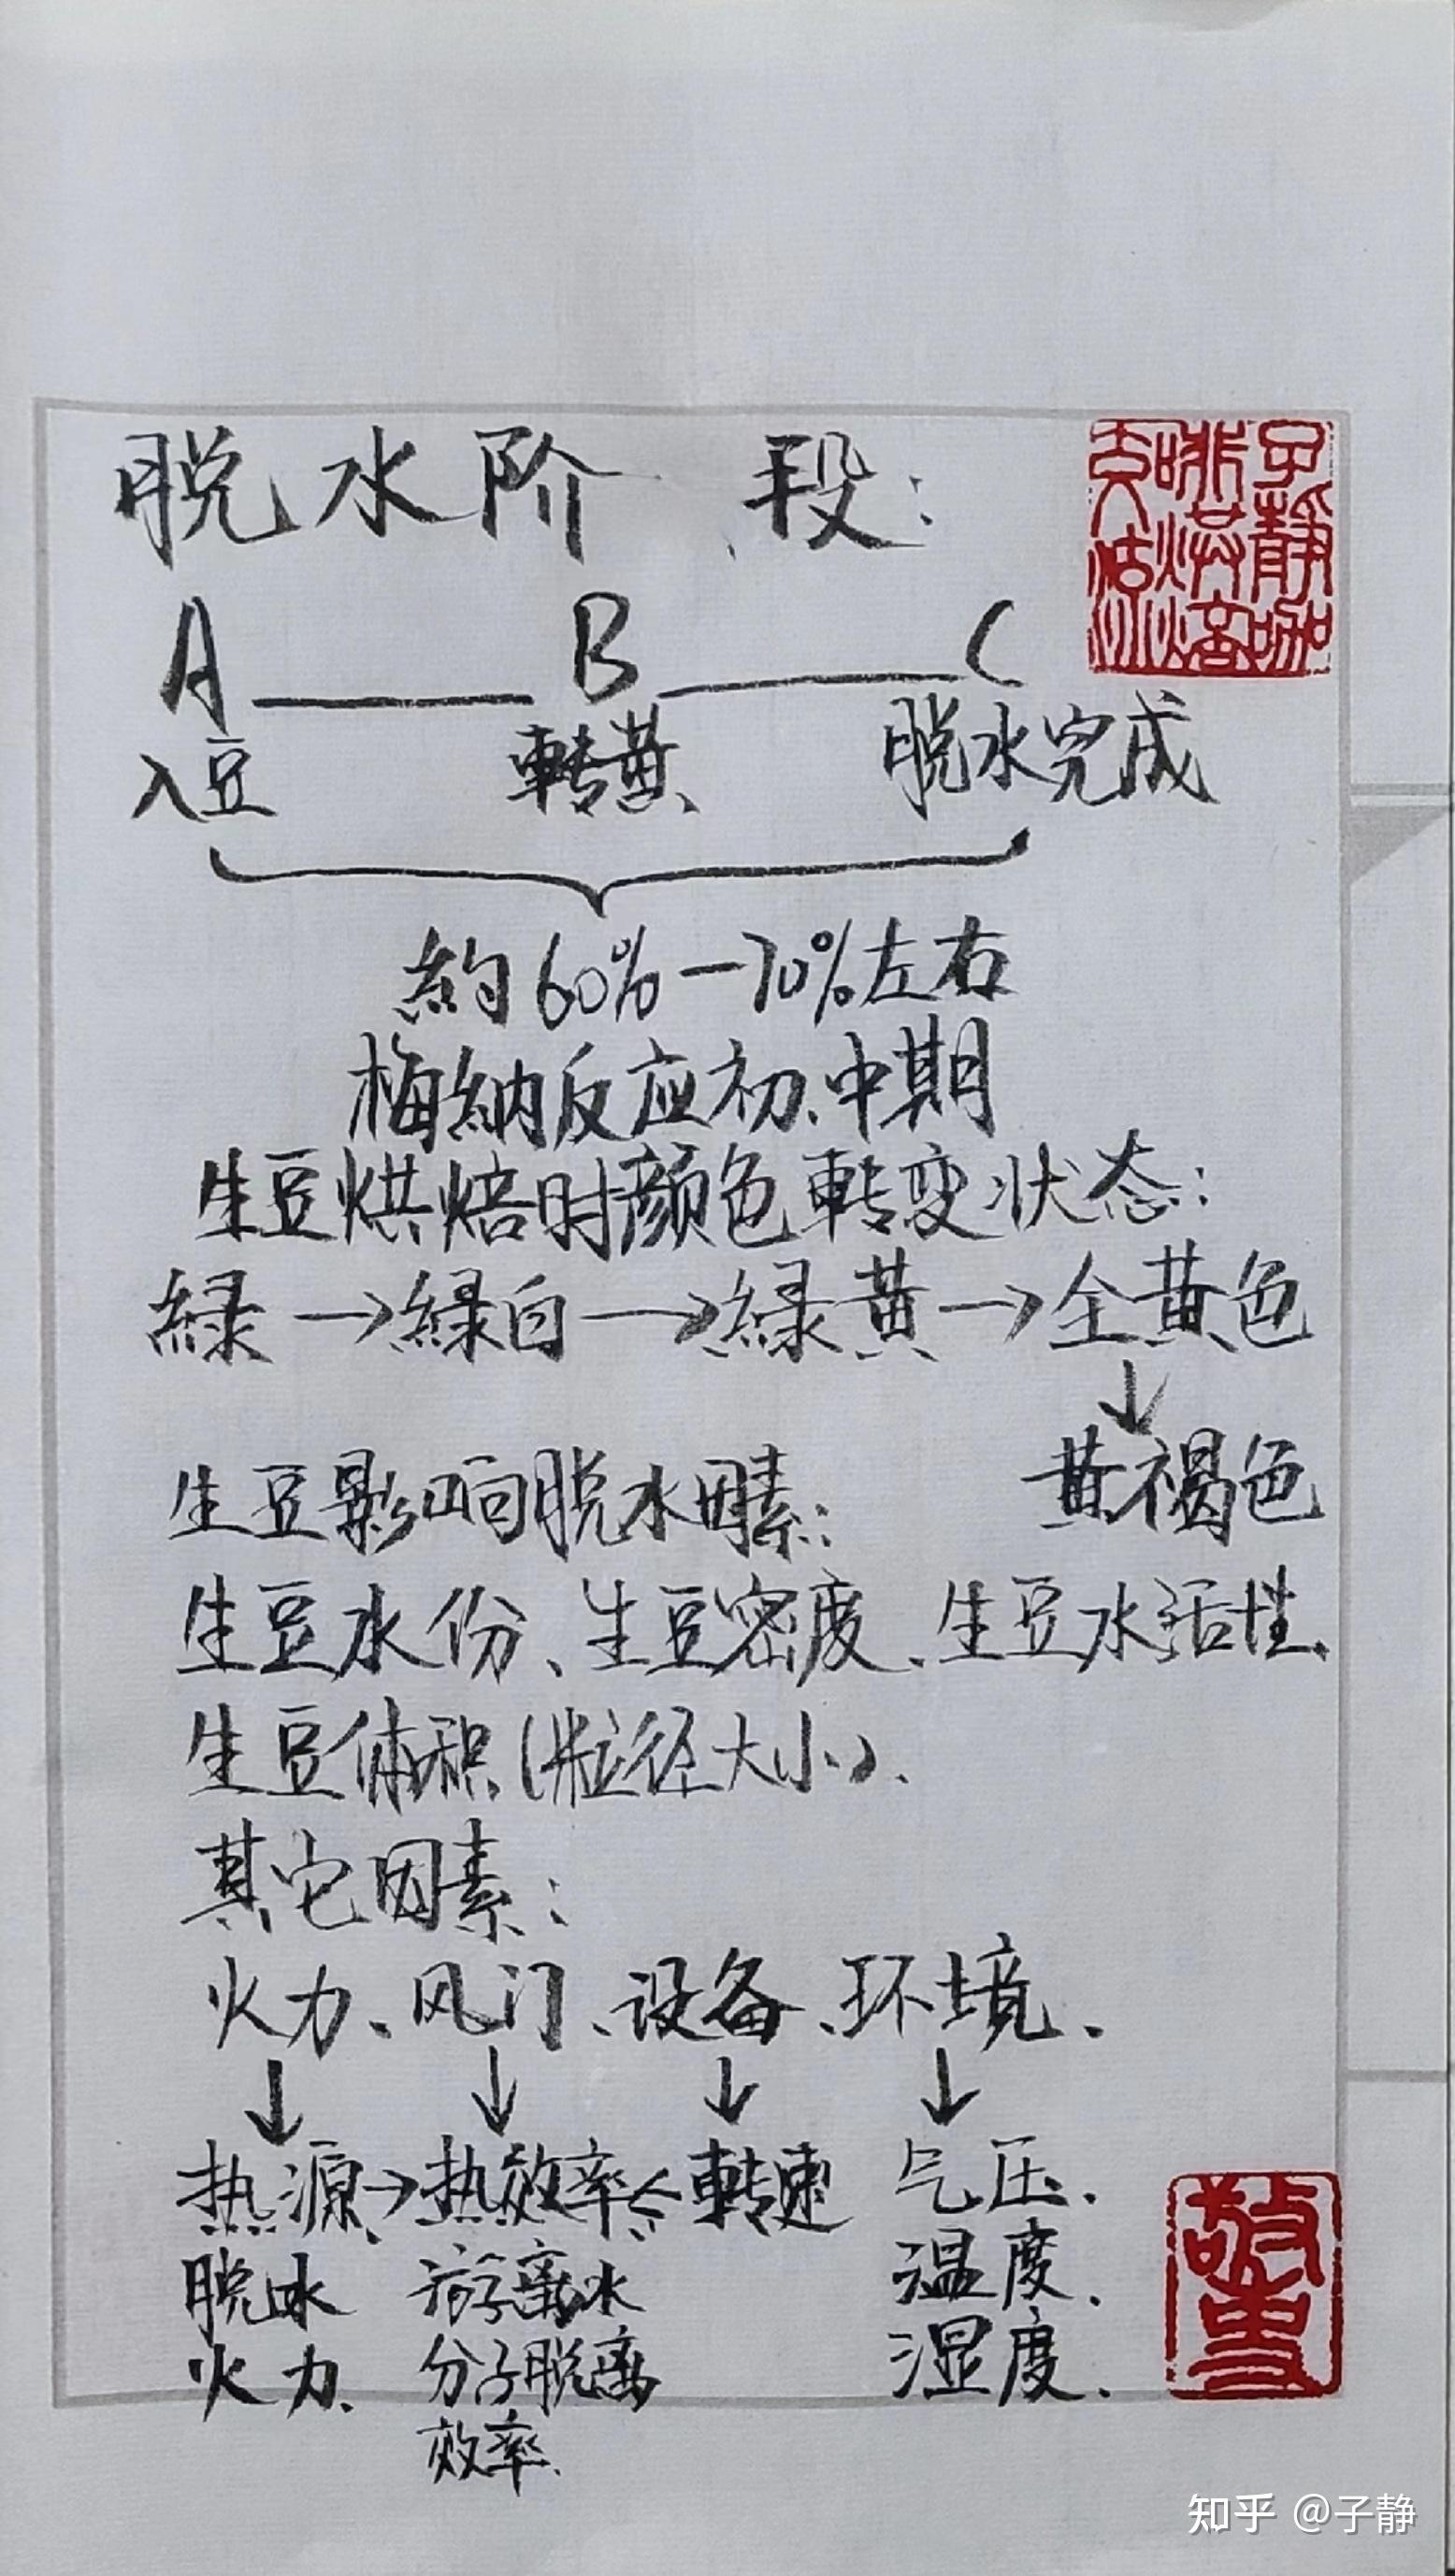 脱水阶段：
A B C
入豆 轉黄 脱水完成
約60%—70%左右
梅納反应初、中期
生豆烘焙时颜色轉变状态：
緑→緑白→緑黄→全黄色
↓
黄褐色
生豆影响脱水因素：
生豆水份、生豆密度、生豆水活性、
生豆体积（粒径大小）、
其它因素：
火力、风门、设备、环境、
↓ ↓ ↓ ↓
热源→热效率←轉速 气压、
脱水 游離水 温度、
火力、 分子脱离 湿度、
效率、
子静咖啡烘焙
敬事
知乎 @子静